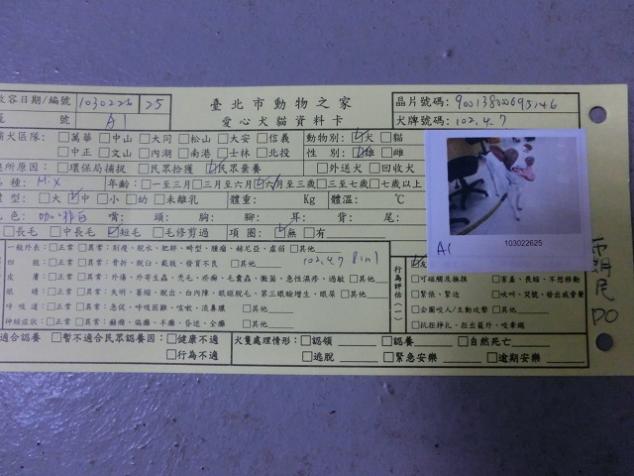 收容日期/編號 1030226 25 臺北市動物之家 晶片號碼: 900138000693146
號 A1 愛心犬貓資料卡 犬牌號碼: 102.4.7
捕犬區隊: □萬華 □中山 □大同 □松山 □大安 □信義 動物別: ☑犬 □貓
□中正 □文山 □內湖 □南港 □士林 □北投 性 別: ☑雄 □雌
原因: □環保局捕捉 □民眾拾獲 ☑民眾棄養 □外送犬 □回收犬
種: M.X 年齡: □一至三月 □三至六月 ☑六月至三歲 □三至七歲 □七歲以上
型: □大 ☑中 □小 □幼 □未離乳 體重: Kg 體溫: ℃
色: 咖啡白 嘴: 頭: 胸: 腳: 耳: 背: 尾:
□長毛 □中長毛 ☑短毛 □毛修剪過 項圈: ☑無 □有
A1
103022625
一般外表: □正常 □異常: 削瘦、脫水、肥胖、畸型、腫瘤、赫尼亞、虛弱 □其他
四 肢: □正常 □異常: 骨折、脫臼、截肢、發育不良 □其他 102.4.7 8in1
皮 膚: □正常 □異常: 外傷、外寄生蟲、禿毛、疥癬、毛囊蟲、黴菌、急性濕疹、過敏 □其他
眼 睛: □正常 □異常: 失明、萎縮、脫出、白內障、眼瞼脫毛、第三眼瞼增生、眼屎 □其他
呼吸道: □正常 □異常: 急促、呼吸困難、咳嗽、流鼻膿 □其他
神經症狀: □正常 □異常: 癲癇、偏癱、半癱、昏迷、全癱 □其他
行為評估(一)
□可碰觸及撫摸 □害羞、畏縮、不想移動
□緊張、緊迫 □吠叫、哭號、發出威脅聲
□企圖咬人/主動攻擊 □其他
□抗拒掙扎、拉出籠外、咬牽繩
適合認養 □暫不適合民眾認養因: □健康不適 犬隻處理情形: □認領 □認養 □自然死亡
□行為不適 □逃脫 □緊急安樂 □逾期安樂